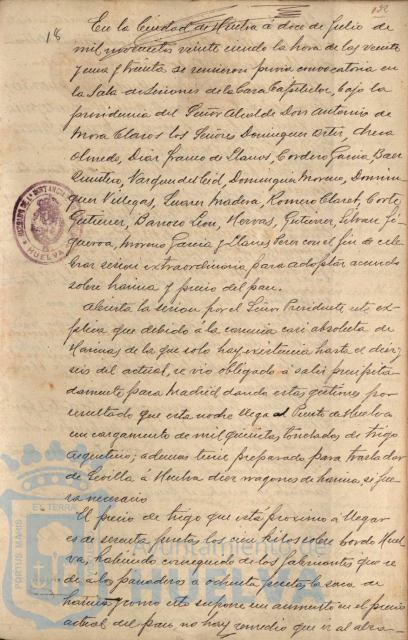 18
122
En la Ciudad de Huelva á doce de Julio de
mil novecientos veinte siendo la hora de las veinte
y una y treinta se reunieron previa convocatoria en
la Sala de Sesiones de la Casa Capitular, bajo la
presidencia del Señor Alcalde Don Antonio de
Mora Claros los Señores Dominguez Ortiz, 
Olmedo, Diaz Franco de Llanos, Cordero Garcia, Baez
Quintero, Vazquez del Cid, Dominguez Moreno, Domin-
guez Villegas, Suarez Madera, Romero Claret, Corte
Gutierrez, Barroso Leon, Hervas, Gutierrez, Silvan Fi-
gueroa, Moreno Garcia y Llanes Vera con el fin de cele-
brar sesion extraordinaria para adoptar acuerdo
sobre harina y precio del pan.
Abierta la sesion por el Señor Presidente, este ex-
plica que debido á la carencia casi absoluta de
Harinas de la que solo hay existencia hasta el diez y
seis del actual, se vio obligado á salir precipita-
damente para Madrid dando estas gestiones por
resultado que esta noche llega al Puerto de Huelva
un cargamento de mil quinientas toneladas de trigo
argentino; ademas tiene preparado para trasladar
de Sevilla á Huelva diez wagones de harina, si fue-
ra necesario
El precio de trigo que está proximo á llegar
es de sesenta pesetas los cien kilos sobre bordo Huel-
va, habiendo conseguido de los fabricantes que se
dé á los panaderos á ochenta pesetas la saca de
harina y como esto supone un aumento en el precio
actual del pan no hay remedio que ir al alza
HUELVA
Ayuntamiento de
HUELVA
PORTUS MARIS
ET TERRÆ